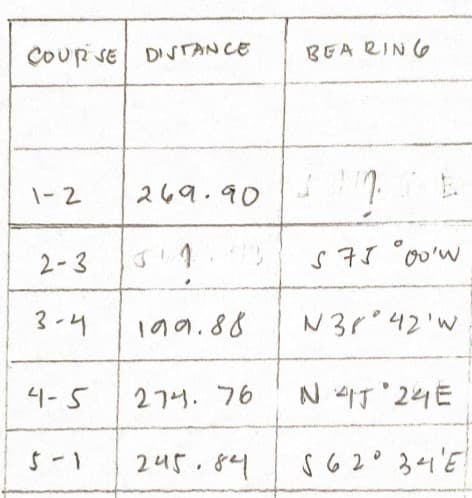 COURSE DISTANCE BEARING
1-2 269.90 ?
2-3 ? S 75°00'W
3-4 199.88
4-5 274.76 N 45°24E
5-1 245.84 S 62° 34'E